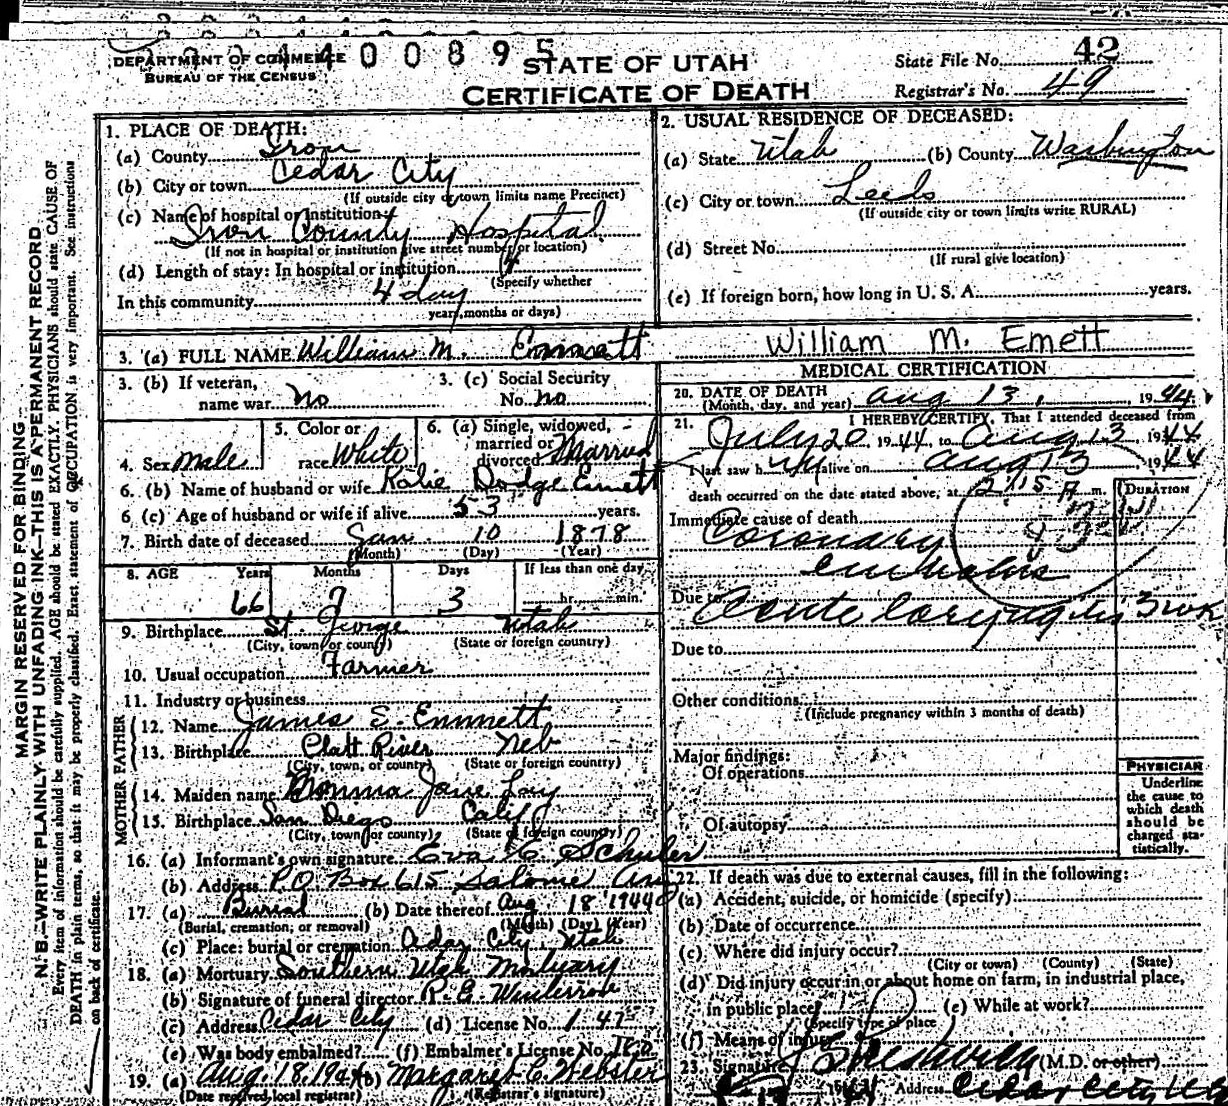 400895
DEPARTMENT OF COMMERCE
BUREAU OF THE CENSUS
STATE OF UTAH
CERTIFICATE OF DEATH
State File No. 42
Registrar's No. 49
MARGIN RESERVED FOR BINDING
N. B.—WRITE PLAINLY WITH UNFADING INK—THIS IS A PERMANENT RECORD
Every item of information should be carefully supplied. AGE should be stated EXACTLY. PHYSICIANS should state CAUSE OF
DEATH in plain terms, so that it may be properly classified. Exact statement of OCCUPATION is very important. See instructions
on back of certificate.
1. PLACE OF DEATH:
(a) County Iron
(b) City or town Cedar City
(If outside city or town limits name Precinct)
(c) Name of hospital or institution
Iron County Hospital
(If not in hospital or institution give street number or location)
(d) Length of stay: In hospital or institution 4
(Specify whether
In this community 4 day
years, months or days)
2. USUAL RESIDENCE OF DECEASED:
(a) State Utah (b) County Washington
(c) City or town Leeds
(If outside city or town limits write RURAL)
(d) Street No.
(If rural give location)
(e) If foreign born, how long in U. S. A. years.
3. (a) FULL NAME William M. Emmett William M. Emett
3. (b) If veteran, name war no
3. (c) Social Security No. no
4. Sex male
5. Color or race White
6. (a) Single, widowed, married or divorced Married
6. (b) Name of husband or wife Katie Dodge Emett
6 (c) Age of husband or wife if alive 53 years.
7. Birth date of deceased Jan 10 1878
(Month) (Day) (Year)
8. AGE Years Months Days If less than one day
66 7 3 hr. min.
9. Birthplace St. George Utah
(City, town or county) (State or foreign country)
10. Usual occupation Farmer
11. Industry or business
FATHER
12. Name James S. Emmett
13. Birthplace Platt River Neb
(City, town, or county) (State or foreign country)
MOTHER
14. Maiden name Jane
15. Birthplace San Diego Calif
(City, town or county) (State or foreign country)
16. (a) Informant's own signature Eva E. Schuler
(b) Address P.O. Box 615 Salome Ariz
17. (a) Burial (b) Date thereof Aug. 18 1944
(Burial, cremation, or removal) (Month) (Day) (Year)
(c) Place: burial or cremation Cedar City Utah
18. (a) Mortuary Southern Utah Mortuary
(b) Signature of funeral director
(c) Address Cedar City (d) License No. 147
(e) Was body embalmed? (f) Embalmer's License No.
19. (a) Aug 18, 1944 (b) Margaret E. Webster
(Date received local registrar) (Registrar's signature)
MEDICAL CERTIFICATION
20. DATE OF DEATH
(Month, day, and year) Aug 13, 1944
21. I HEREBY CERTIFY, That I attended deceased from
July 20, 1944, to Aug 13, 1944
I last saw h alive on Aug 13, 1944
death occurred on the date stated above, at 2:15 A m.
DURATION
Immediate cause of death
Coronary
embolus
Due to Acute laryngitis 3 wk
Due to
Other conditions
(Include pregnancy within 3 months of death)
Major findings:
Of operations
Of autopsy
PHYSICIAN
Underline
the cause to
which death
should be
charged sta-
tistically.
22. If death was due to external causes, fill in the following:
(a) Accident, suicide, or homicide (specify)
(b) Date of occurrence
(c) Where did injury occur?
(City or town) (County) (State)
(d) Did injury occur in or about home on farm, in industrial place,
in public place (e) While at work?
(Specify type of place
(f) Means of injury
23. Signature (M.D. or other)
Address Cedar City